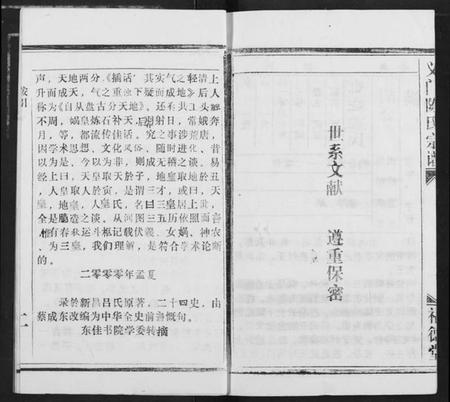 声，天地两分《插话》其实气之轻清上
升而成天，气之重浊下凝而成地》后人
称为《自从盘古分天地》，还有共工头
不周，娲皇炼石补天，羿射日，常娥奔
月，等，都流传佳话。究之事涉荒唐，
因学术思想，文化风俗、随时进化、昔
以为是，今以为非，则成无稽之谈。易
经上曰，天皇取天於子，地皇取地於丑
，人皇取人於寅，是谓三才，或曰，天
皇，地皇，人皇氏，名曰三皇居上世，
全是之谈。从河图三五历依照而言
惟有春秋运斗枢记载伏羲、女娲、神农
、为三皇，我们理解，是符合学术论断
的。
二零零零年孟夏
录於新昌吕氏原著，二十四史，由
蔡成东改编为中华全史前言慨句。
东佳书院学委转摘
二一
世系文献 遵重保密
义门陈氏宗谱
德堂